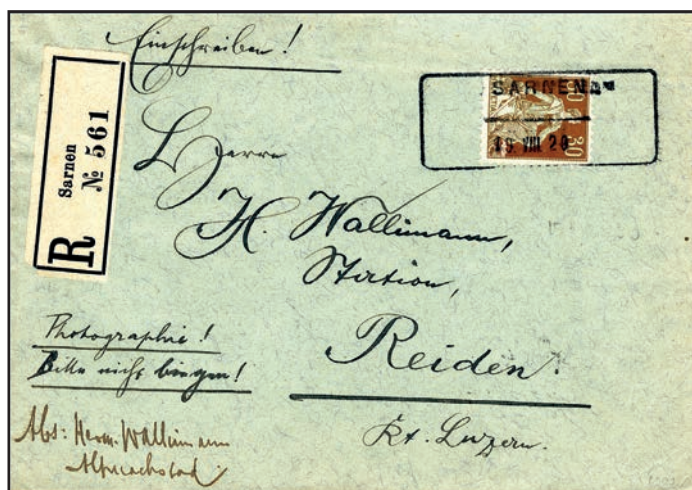 Einschreiben!
R
Sarnen
№ 561
SARNEN
19 VIII 20
30
30
Herrn
H. Wallimann,
Station,
Reiden.
Kt. Luzern.
Photographie!
Bitte nicht biegen!
Abs: Herm. Wallimann
Alpnachstad